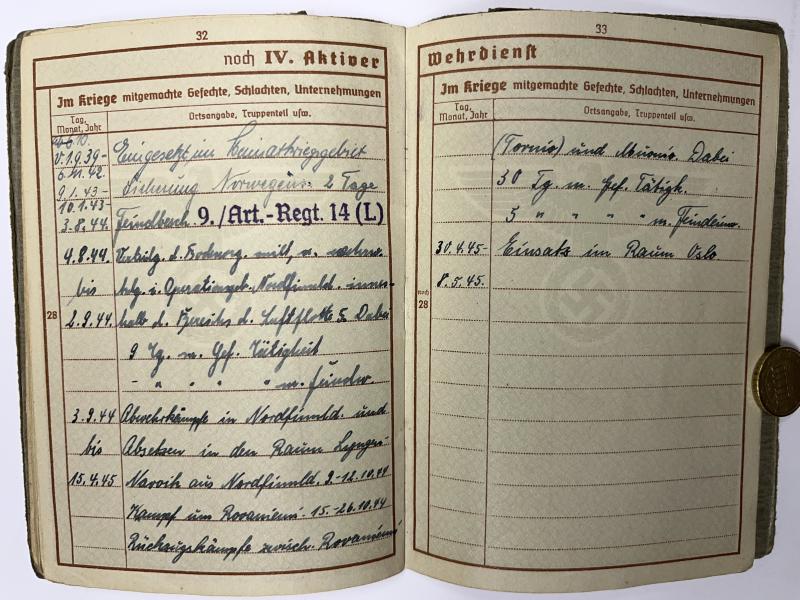 32
noch IV. Aktiver
Im Kriege mitgemachte Gefechte, Schlachten, Unternehmungen
Tag,
Monat, Jahr
Ortsangabe, Truppenteil usw.
v. 1.9.39- Eingesetzt im Heimatkriegsgebiet
6.11.42.
9.1.43- Sicherung Norwegens 2 Tage
10.1.43-
3.8.44. Feindbesch. 9./Art.-Regt. 14 (L)
4.8.44. d. Bodenorg. milit. u.
bis i. Operationsgeb. Nordfinnld. inner-
28
2.9.44. halb d. Bereichs d. Luftflotte 5. Dabei
9 Tg. m. Gef. Tätigkeit
- " " " " m.
3.9.44 Abwehrkämpfe in Nordfinnld. und
bis Absetzen in den Raum Lyngen-
15.4.45 Narvik aus Nordfinnld. -12.10.44
Kampf um Rovaniemi. 15.-26.10.44
Rückzugskämpfe zwisch. Rovaniemi
33
Wehrdienst
Im Kriege mitgemachte Gefechte, Schlachten, Unternehmungen
Tag,
Monat, Jahr
Ortsangabe, Truppenteil usw.
(Tornio) und Muonio. Dabei
30 Tg. m. Gef. Tätigk.
5 " " " " m.
30.4.45- Einsatz im Raum Oslo
8.5.45.
noch
28